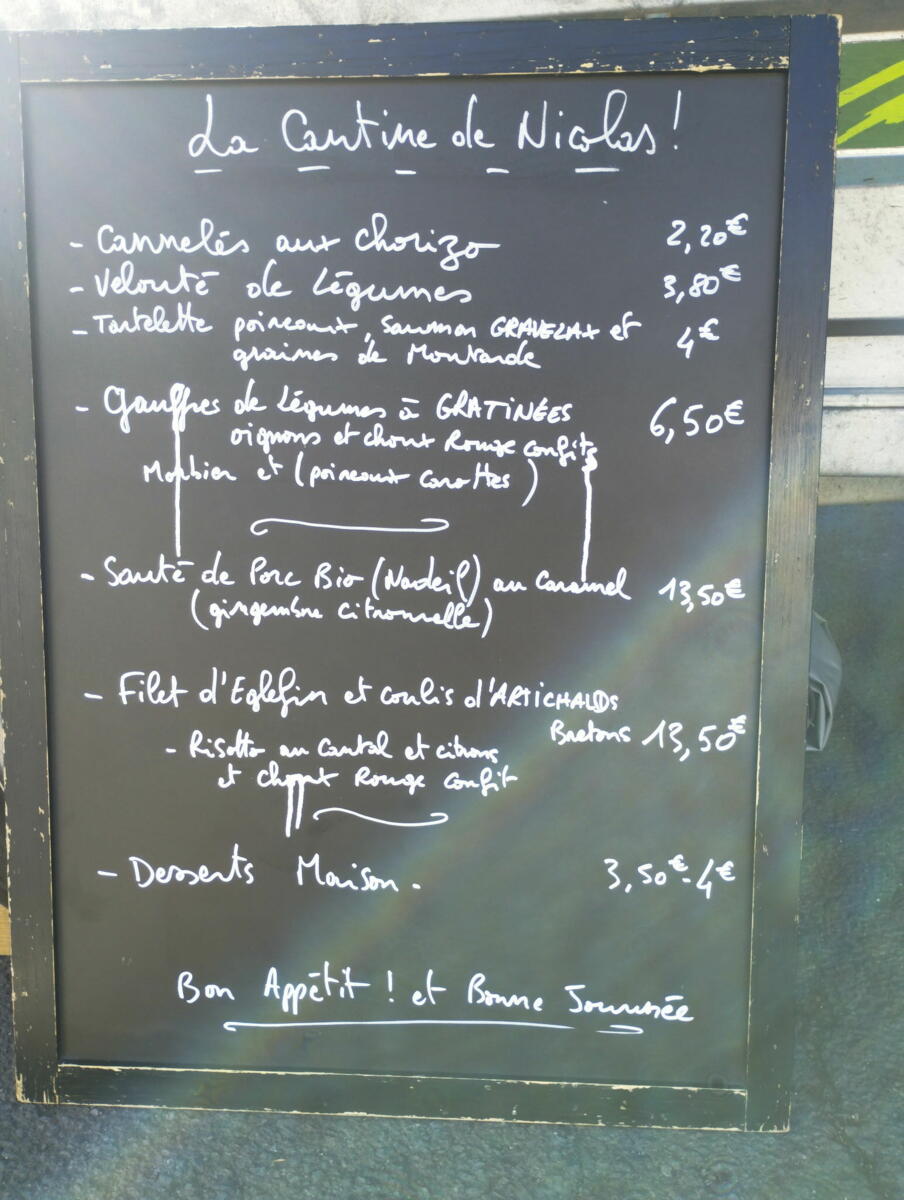 La Cantine de Nicolas !
- Cannelés aux chorizo 2,20€
- Velouté de légumes 3,80€
- Tartelette poireaux, Saumon GRAVELAX et 4€
graines de Moutarde
- Gauffres de légumes à GRATINÉES 6,50€
oignons et choux Rouge confits
Morbier et (poireaux carottes)
- Sauté de Porc Bio (Nadeil) au Caramel 13,50€
(gingembre citronnelle)
- Filet d'Eglefin et coulis d'ARTICHAUDS
Bretons 13,50€
- Risotto au Cantal et citrons
et choux Rouge confit
- Desserts Maison. 3,50€-4€
Bon Appétit ! et Bonne Journée